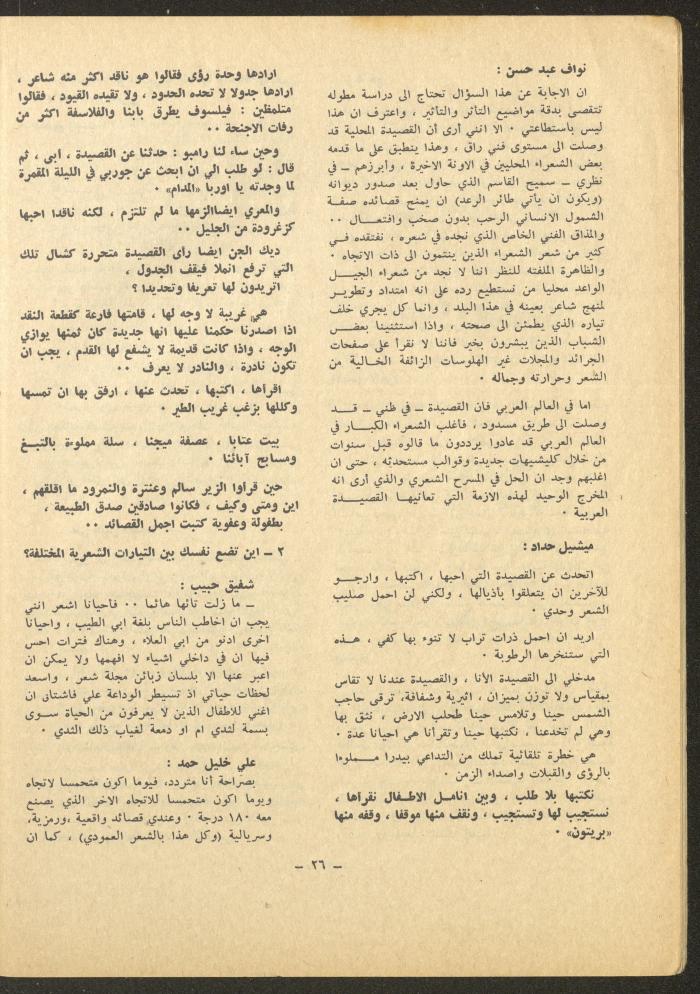 نواف عبد حسن :
ان الاجابة عن هذا السؤال تحتاج الى دراسة مطوله
تتقصى بدقة مواضيع التأثر والتأثير ، واعترف ان هذا
ليس باستطاعتي ٠ الا انني أرى أن القصيدة المحلية قد
وصلت الى مستوى فني راق ، وهذا ينطبق على ما قدمه
بعض الشعراء المحليين في الاونة الاخيرة ، وابرزهم ــ في
نظري ــ سميح القاسم الذي حاول بعد صدور ديوانه
(ويكون ان يأتي طائر الرعد) ان يمنح قصائده صفة
الشمول الانساني الرحب بدون صخب وافتعال ٠٠
والمذاق الفني الخاص الذي نجده في شعره ، نفتقده في
كثير من شعر الشعراء الذين ينتمون الى ذات الاتجاه ٠
والظاهرة الملفته للنظر اننا لا نجد من شعراء الجيل
الواعد محليا من نستطيع رده على انه امتداد وتطوير
لمنهج شاعر بعينه في هذا البلد ، وانما كل يجري خلف
تياره الذي يطمئن الى صحته ، واذا استثنينا بعض
الشباب الذين يبشرون بخير فاننا لا نقرأ على صفحات
الجرائد والمجلات غير الهلوسات الزائفة الخالية من
الشعر وحرارته وجماله ٠
اما في العالم العربي فان القصيدة ــ في ظني ــ قد
وصلت الى طريق مسدود ، فاغلب الشعراء الكبار في
العالم العربي قد عادوا يرددون ما قالوه قبل سنوات
من خلال كليشيهات جديدة وقوالب مستحدثه ، حتى ان
اغلبهم وجد ان الحل في المسرح الشعري والذي أرى انه
المخرج الوحيد لهذه الازمة التي تعانيها القصيدة
العربية ٠
ميشيل حداد :
اتحدث عن القصيدة التي احبها ، اكتبها ، وارجو
للآخرين ان يتعلقوا بأذيالها ، ولكني لن احمل صليب
الشعر وحدي ٠
اريد ان احمل ذرات تراب لا تنوء بها كفي ، هذه
التي ستنخرها الرطوبة ٠
مدخلي الى القصيدة الأنا ، والقصيدة عندنا لا تقاس
بمقياس ولا توزن بميزان ، اثيرية وشفافة، ترقى حاجب
الشمس حينا وتلامس حينا طحلب الارض ، نثق بها
وهي لم تخدعنا ، نكتبها حينا وتقرأنا هي احيانا عدة ٠
هي خطرة تلقائية تملك من التداعي بيدرا مملوءا
بالرؤى والقبلات واصداء الزمن ٠
نكتبها بلا طلب ، وبين انامل الاطفال نقرأها ،
نستجيب لها وتستجيب ، ونقف منها موقفا ، وقفه منها
«بريتون» ٠
ارادها وحدة رؤى فقالوا هو ناقد اكثر منه شاعر ،
ارادها جدولا لا تحده الحدود ، ولا تقيده القيود ، فقالوا
متلمظين : فيلسوف يطرق بابنا والفلاسفة اكثر من
رفات الاجنحة ٠٠
وحين ساء لنا رامبو : حدثنا عن القصيدة ، أبى ، ثم
قال : لو طلب الي ان ابحث عن جوربي في الليلة المقمرة
لما وجدته يا اوربا «المدام» ٠
والمعري ايضاالزمها ما لم تلتزم ، لكنه ناقدا احبها
كزغرودة من الجليل ٠٠
ديك الجن ايضا رأى القصيدة متحررة كشال تلك
التي ترفع انملا فيقف الجدول ،
اتريدون لها تعريفا وتحديدا ؟
هي غريبة لا وجه لها ، قامتها فارعة كقطعة النقد
اذا اصدرنا حكمنا عليها انها جديدة كان ثمنها يوازي
الوجه ، واذا كانت قديمة لا يشفع لها القدم ، يجب ان
تكون نادرة ، والنادر لا يعرف ٠٠
اقرأها ، اكتبها ، تحدث عنها ، ارفق بها ان تمسها
وكللها بزغب غريب الطير ٠
بيت عتابا ، عصفة ميجنا ، سلة مملوءة بالتبغ
ومسابح آبائنا ٠
حين قرأوا الزير سالم وعنترة والنمرود ما اقلقهم ،
اين ومتى وكيف ، فكانوا صادقين صدق الطبيعة ،
بطفولة وعفوية كتبت اجمل القصائد ٠٠
٢ ــ اين تضع نفسك بين التيارات الشعرية المختلفة؟
شفيق حبيب :
ــ ما زلت تائها هائما ٠٠ فأحيانا اشعر انني
يجب ان اخاطب الناس بلغة ابي الطيب ، واحيانا
اخرى ادنو من ابي العلاء ، وهناك فترات احس
فيها ان في داخلي اشياء لا افهمها ولا يمكن ان
اعبر عنها الا بلسان زبائن مجلة شعر ، واسعد
لحظات حياتي اذ تسيطر الوداعة علي فاشتاق ان
اغني للاطفال الذين لا يعرفون من الحياة سوى
بسمة لثدي ام او دمعة لغياب ذلك الثدي ٠
علي خليل حمد :
بصراحة أنا متردد، فيوما اكون متحمسا لاتجاه
ويوما اكون متحمسا للاتجاه الاخر الذي يصنع
معه ١٨٠ درجة ٠ وعندي قصائد واقعية ،ورمزية،
وسريالية (وكل هذا بالشعر العمودي) ، كما ان
ــ ٢٦ ــ